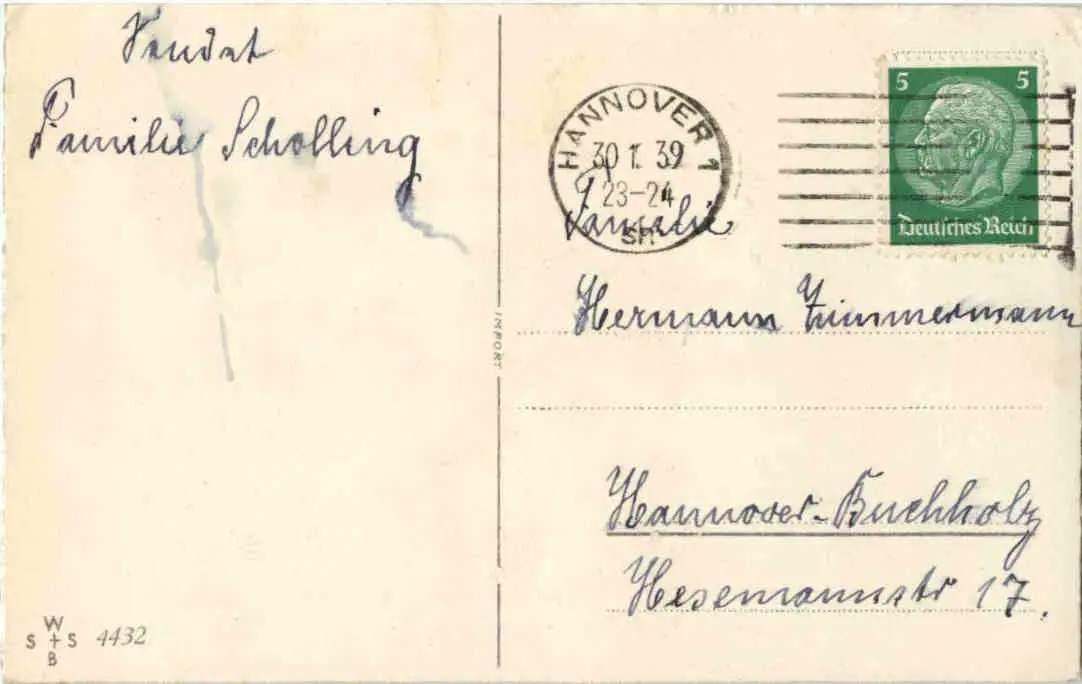 Sendet
Familie Scholling
HANNOVER 1
30 1. 39
23-24
Familie
5 5
Deutsches Reich
Hermann Zimmermann
IMPORT
Hannover-Buchholz
Hesemannstr 17.
W
S + S 4432
B